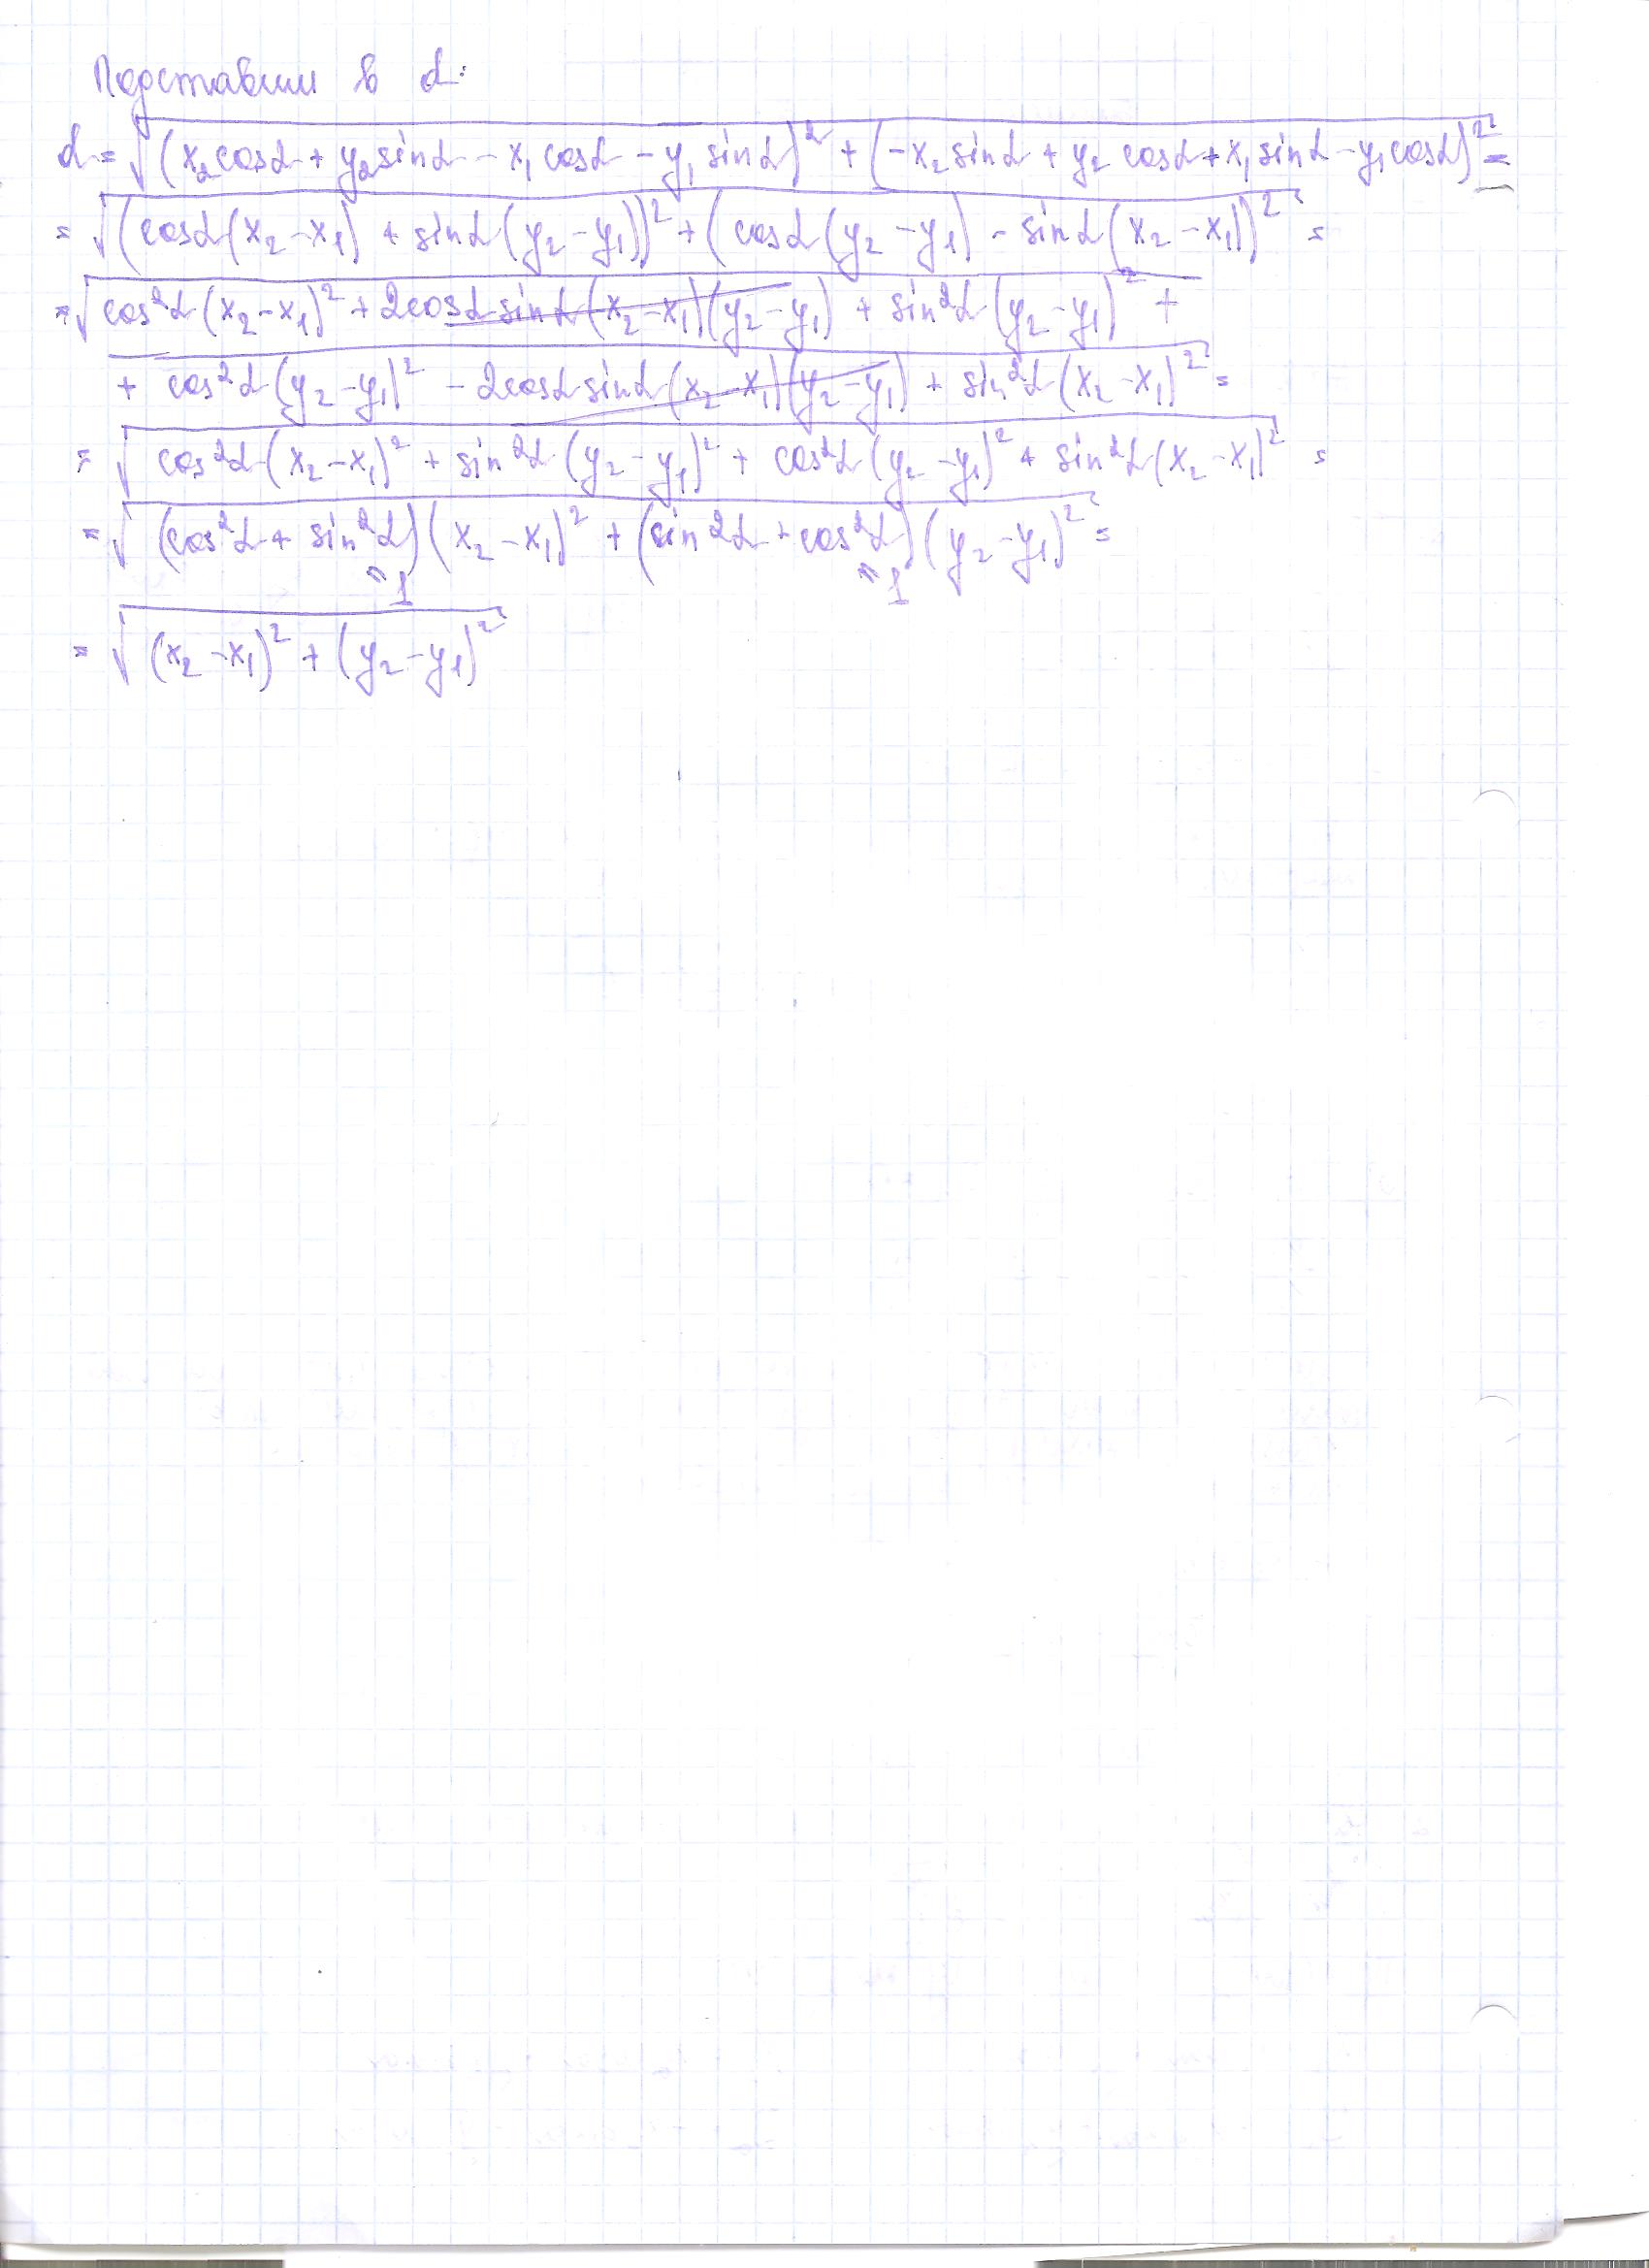 Подставим в d:
d = √((x₂cosα + y₂sinα - x₁cosα - y₁sinα)² + (-x₂sinα + y₂cosα + x₁sinα - y₁cosα)²) =
= √((cosα(x₂-x₁) + sinα(y₂-y₁))² + (cosα(y₂-y₁) - sinα(x₂-x₁))²) =
= √(cos²α(x₂-x₁)² + 2cosαsinα(x₂-x₁)(y₂-y₁) + sin²α(y₂-y₁)² +
+ cos²α(y₂-y₁)² - 2cosαsinα(x₂-x₁)(y₂-y₁) + sin²α(x₂-x₁)²) =
= √(cos²α(x₂-x₁)² + sin²α(y₂-y₁)² + cos²α(y₂-y₁)² + sin²α(x₂-x₁)²) =
= √((cos²α + sin²α)(x₂-x₁)² + (sin²α + cos²α)(y₂-y₁)²) =
=1 =1
= √((x₂-x₁)² + (y₂-y₁)²)